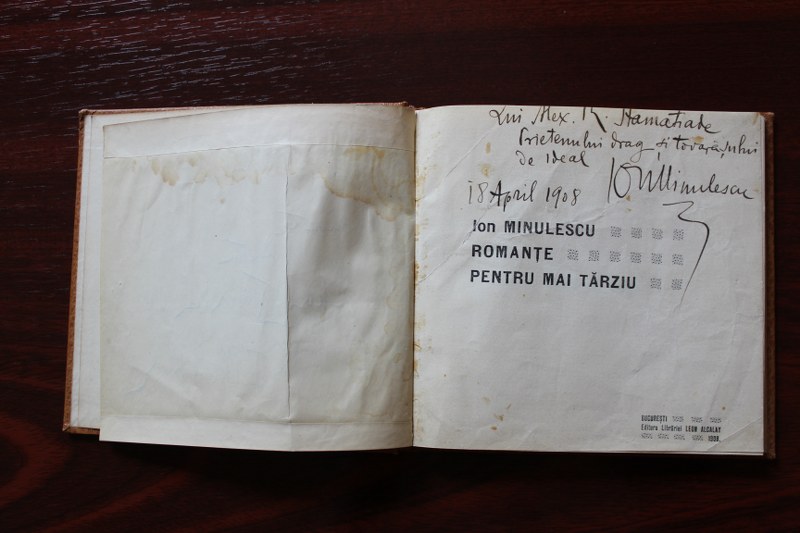 Lui Alex. T. Stamatiade
Prietenului drag și tovarășului
de Ideal
18 April 1908 Ion Minulescu
Ion MINULESCU
ROMANȚE
PENTRU MAI TÂRZIU
BUCUREȘTI
Editura Librăriei LEON ALCALAY
1908.